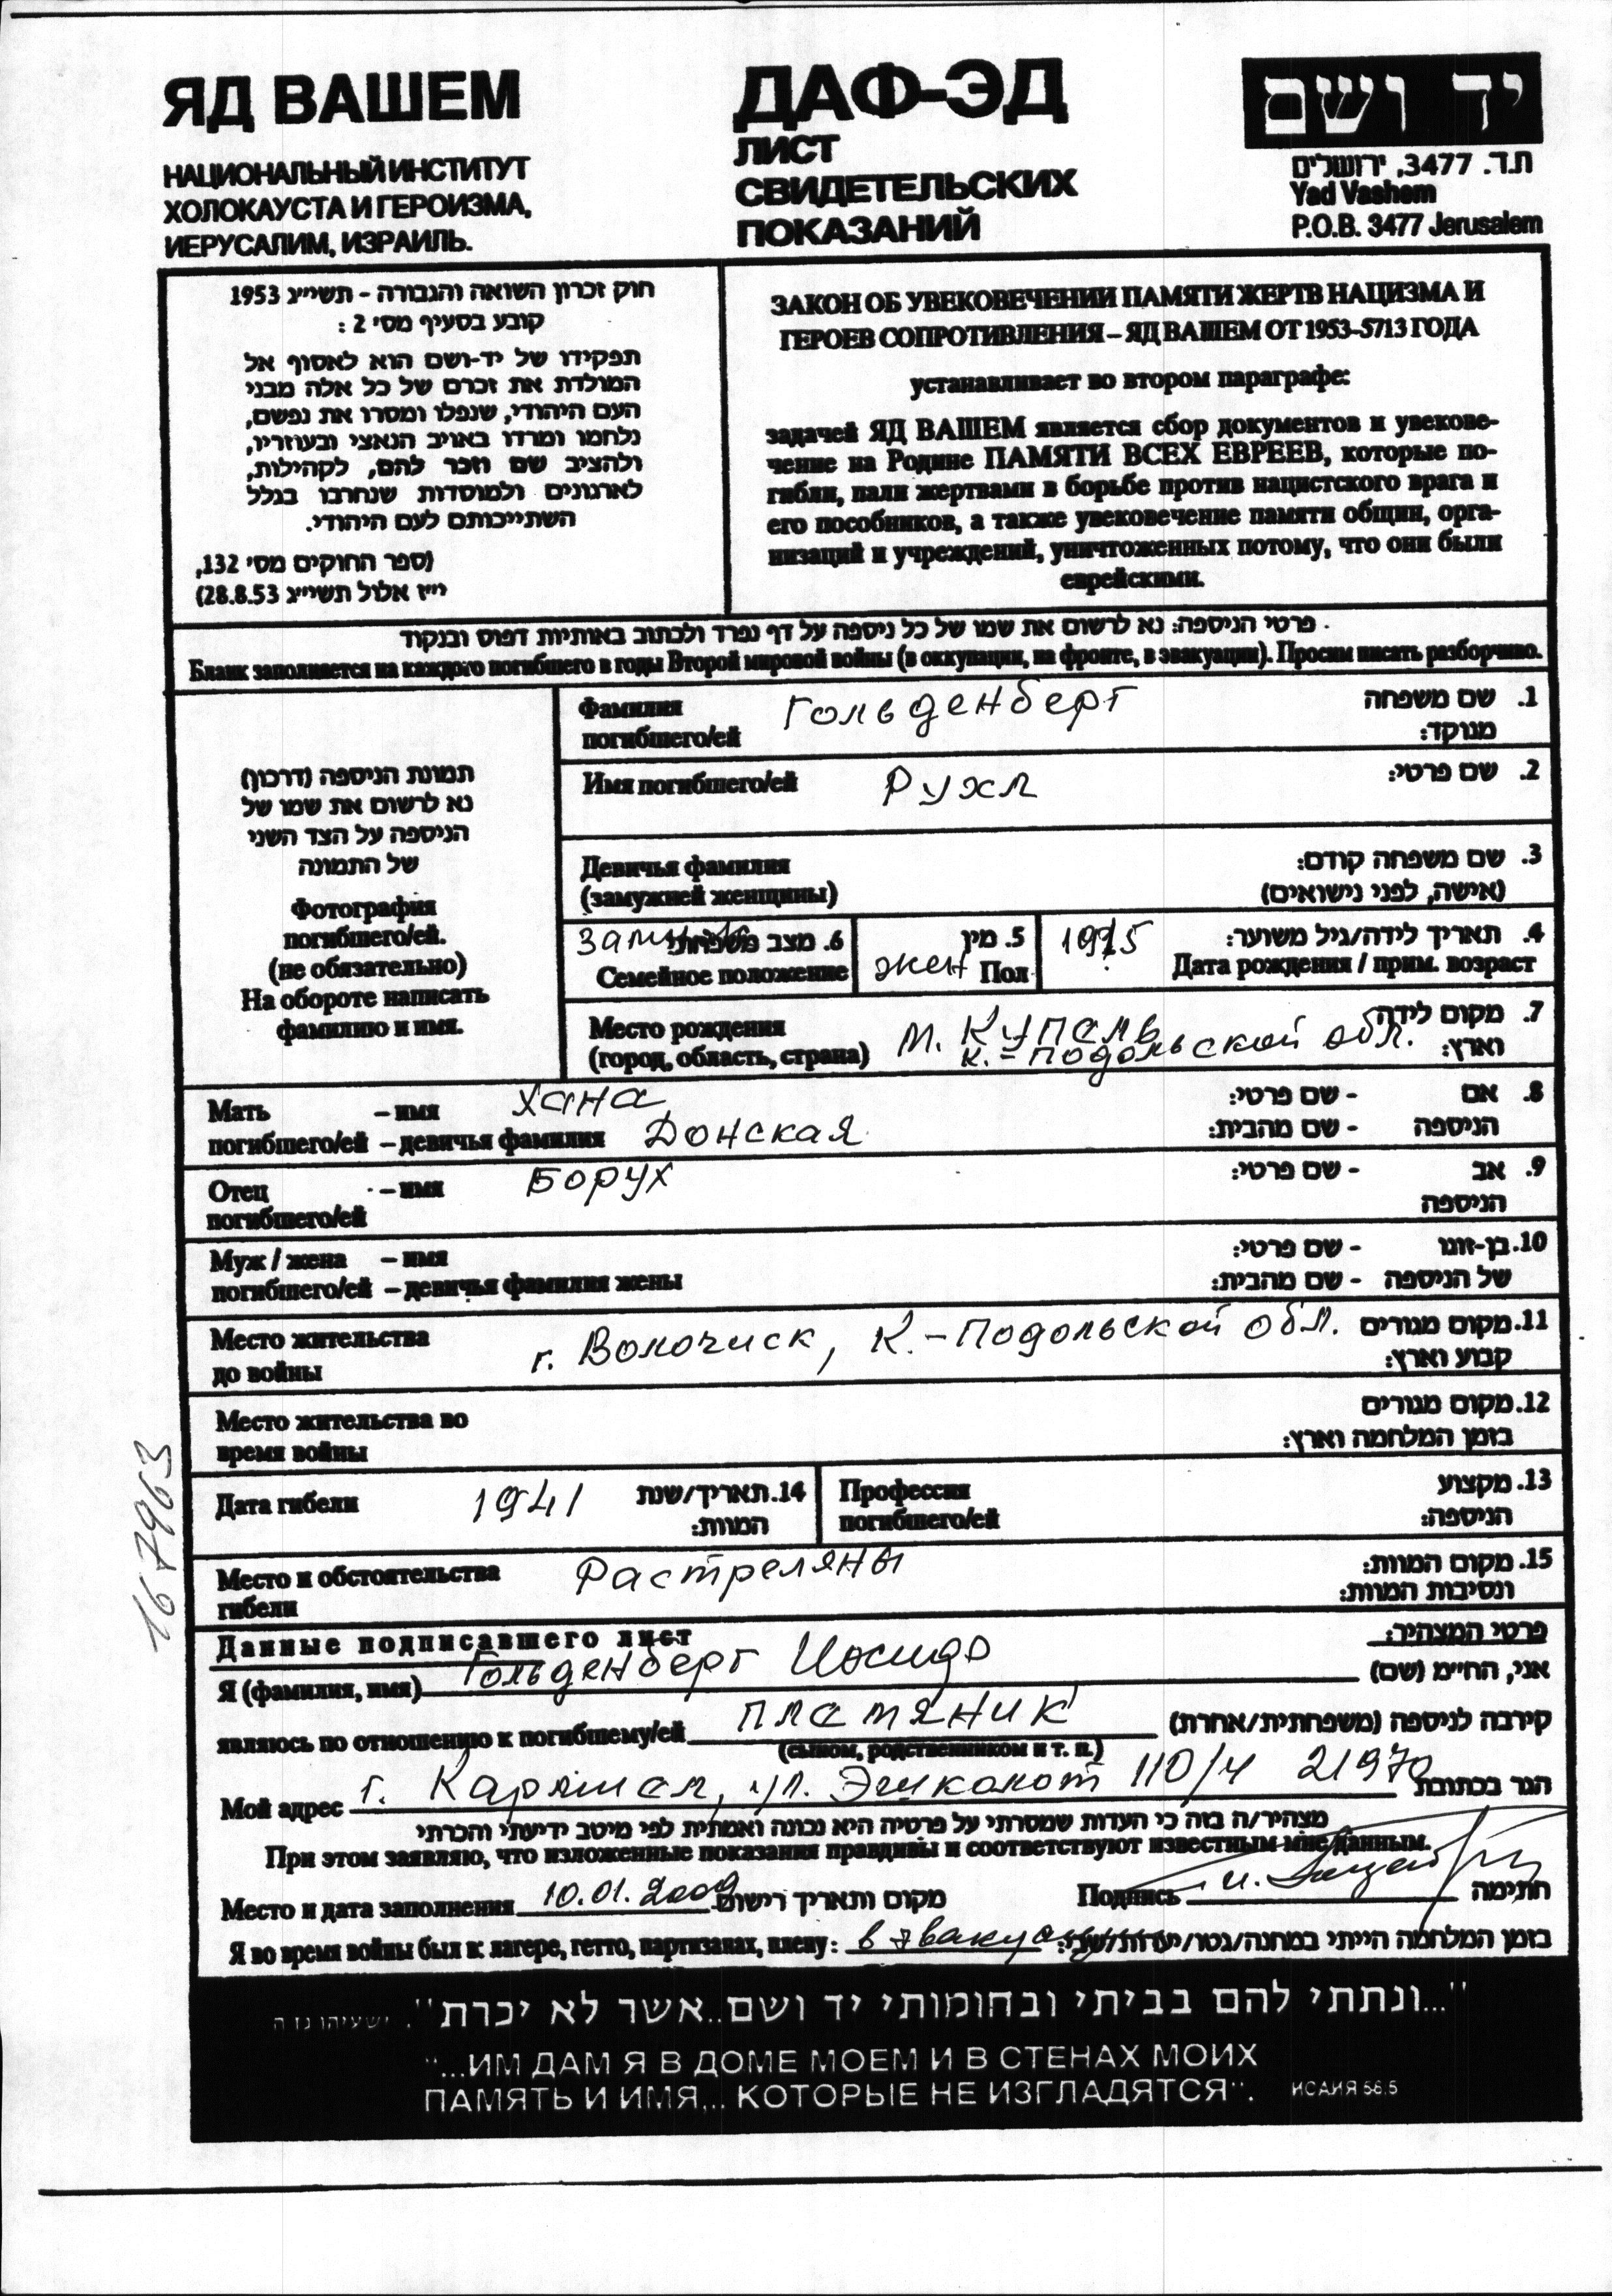 ЯД ВАШЕМ
НАЦИОНАЛЬНЫЙ ИНСТИТУТ
ХОЛОКАУСТА И ГЕРОИЗМА,
ИЕРУСАЛИМ, ИЗРАИЛЬ.
ДАФ-ЭД
ЛИСТ
СВИДЕТЕЛЬСКИХ
ПОКАЗАНИЙ
יד ושם
ת.ד. 3477, ירושלים
Yad Vashem
P.O.B. 3477 Jerusalem
חוק זכרון השואה והגבורה - תשי״ג 1953
קובע בסעיף מס׳ 2 :
תפקידו של יד-ושם הוא לאסוף אל
המולדת את זכרם של כל אלה מבני
העם היהודי, שנפלו ומסרו את נפשם,
נלחמו ומרדו באויב הנאצי ובעוזריו,
ולהציב שם וזכר להם, לקהילות,
לארגונים ולמוסדות שנחרבו בגלל
השתייכותם לעם היהודי.
(ספר החוקים מס׳ 132,
י״ז אלול תשי״ג 28.8.53)
ЗАКОН ОБ УВЕКОВЕЧЕНИИ ПАМЯТИ ЖЕРТВ НАЦИЗМА И
ГЕРОЕВ СОПРОТИВЛЕНИЯ – ЯД ВАШЕМ ОТ 1953-5713 ГОДА
устанавливает во втором параграфе:
задачей ЯД ВАШЕМ является сбор документов и увекове-
чение на Родине ПАМЯТИ ВСЕХ ЕВРЕЕВ, которые по-
гибли, пали жертвами в борьбе против нацистского врага и
его пособников, а также увековечение памяти общин, орга-
низаций и учреждений, уничтоженных потому, что они были
еврейскими.
פרטי הניספה: נא לרשום את שמו של כל ניספה על דף נפרד ולכתוב באותיות דפוס ובנקוד
Бланк заполняется на каждого погибшего в годы Второй мировой войны (в оккупации, на фронте, в эвакуации). Просим писать разборчиво.
תמונת הניספה (דרכון)
נא לרשום את שמו של
הניספה על הצד השני
של התמונה
Фотография
погибшего/ей.
(не обязательно)
На обороте написать
фамилию и имя.
Фамилия Гольденберг 1. שם משפחה
погибшего/ей מנוקד:
Имя погибшего/ей Рухл 2. שם פרטי:
Девичья фамилия 3. שם משפחה קודם:
(замужней женщины) (אישה, לפני נישואים)
6. מצב משפחתי 5. מין 1915 4. תאריך לידה/גיל משוער:
Семейное положение жен Пол Дата рождения / прим. возраст
Место рождения м. Купель 7. מקום לידה
(город, область, страна) К.-Подольской обл. וארץ:
Мать – имя Хана 8. אם - שם פרטי:
погибшего/ей – девичья фамилия Донская הניספה - שם מהבית:
Отец – имя Борух 9. אב - שם פרטי:
погибшего/ей הניספה
Муж / жена – имя 10. בן-זוגו - שם פרטי:
погибшего/ей – девичья фамилия жены של הניספה - שם מהבית:
Место жительства г. Волочиск, К.-Подольской обл. 11. מקום מגורים
до войны קבוע וארץ:
Место жительства во 12. מקום מגורים
время войны בזמן המלחמה וארץ:
Дата гибели 1941 14. תאריך/שנת
המוות:
Профессия 13. מקצוע
погибшего/ей הניספה:
Место и обстоятельства Растреляны 15. מקום המוות:
гибели ונסיבות המוות:
Данные подписавшего лист פרטי המצהיר:
Я (фамилия, имя) Гольденберг אני, הח״מ (שם)
являюсь по отношению к погибшему/ей племяник קירבה לניספה (משפחתית/אחרת)
(сыном, родственником и т. п.)
Мой адрес г. Кармиел, ул. Эшколот 110/4 21970 הגר בכתובת
מצהיר/ה בזה כי העדות שמסרתי על פרטיה היא נכונה ואמתית לפי מיטב ידיעתי והכרתי
При этом заявляю, что изложенные показания правдивы и соответствуют известным мне данным.
Место и дата заполнения 10.01.2009 מקום ותאריך רישום Подпись חתימה
Я во время войны был в: лагере, гетто, партизанах, плену: в эвакуации בזמן המלחמה הייתי במחנה/גטו/
"...ונתתי להם בביתי ובחומותי יד ושם..אשר לא יכרת". ישעיהו נז ה
"...ИМ ДАМ Я В ДОМЕ МОЕМ И В СТЕНАХ МОИХ
ПАМЯТЬ И ИМЯ,.. КОТОРЫЕ НЕ ИЗГЛАДЯТСЯ". ИСАИЯ 56.5
167963